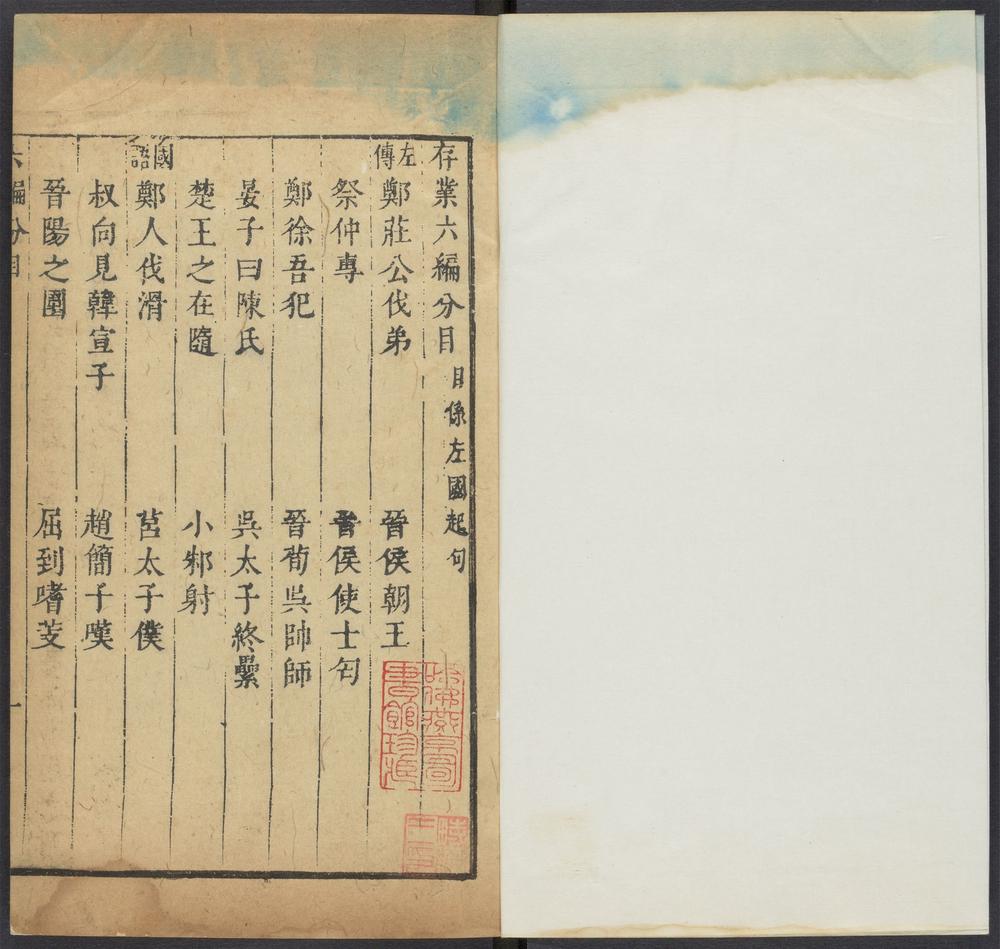 存業六編分目 目係左國起句
左傳 鄭莊公伐弟 晉侯朝王
祭仲專 晉侯使士匄
鄭徐吾犯 晉荀吳帥師
晏子曰陳氏 吳太子終纍
楚王之在隨 小邾射
國語 鄭人伐滑 莒太子僕
叔向見韓宣子 趙簡子嘆
晉陽之圍 屈到嗜芰
六編分目 一
哈佛燕京圖書館珍藏